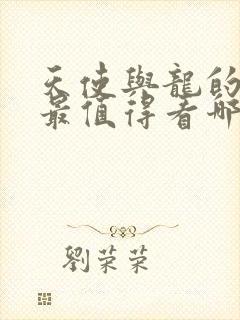 天使與龍的
最值得看哪
劉荣荣